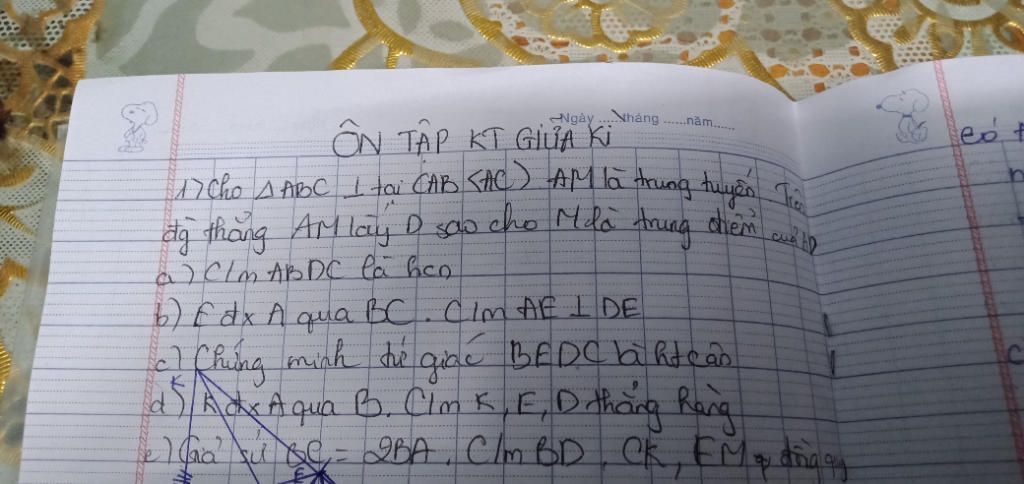 Ngày ......tháng ......năm......
ÔN TẬP KT GIỮA Kì
1) Cho △ABC ⊥ tại (AB < AC) AM là trung tuyến Trên
đg thẳng AM lấy D sao cho M là trung điểm của AD
a) C/m ABDC là hcn
b) E đx A qua BC. C/m AE ⊥ DE
c) Chứng minh tứ giác BEDC là htcân
K
d) K đx A qua B. C/m K, E, D thẳng hàng
e) Giả sử BC = 2BA. C/m BD, CK, EM đồng quy
E
có